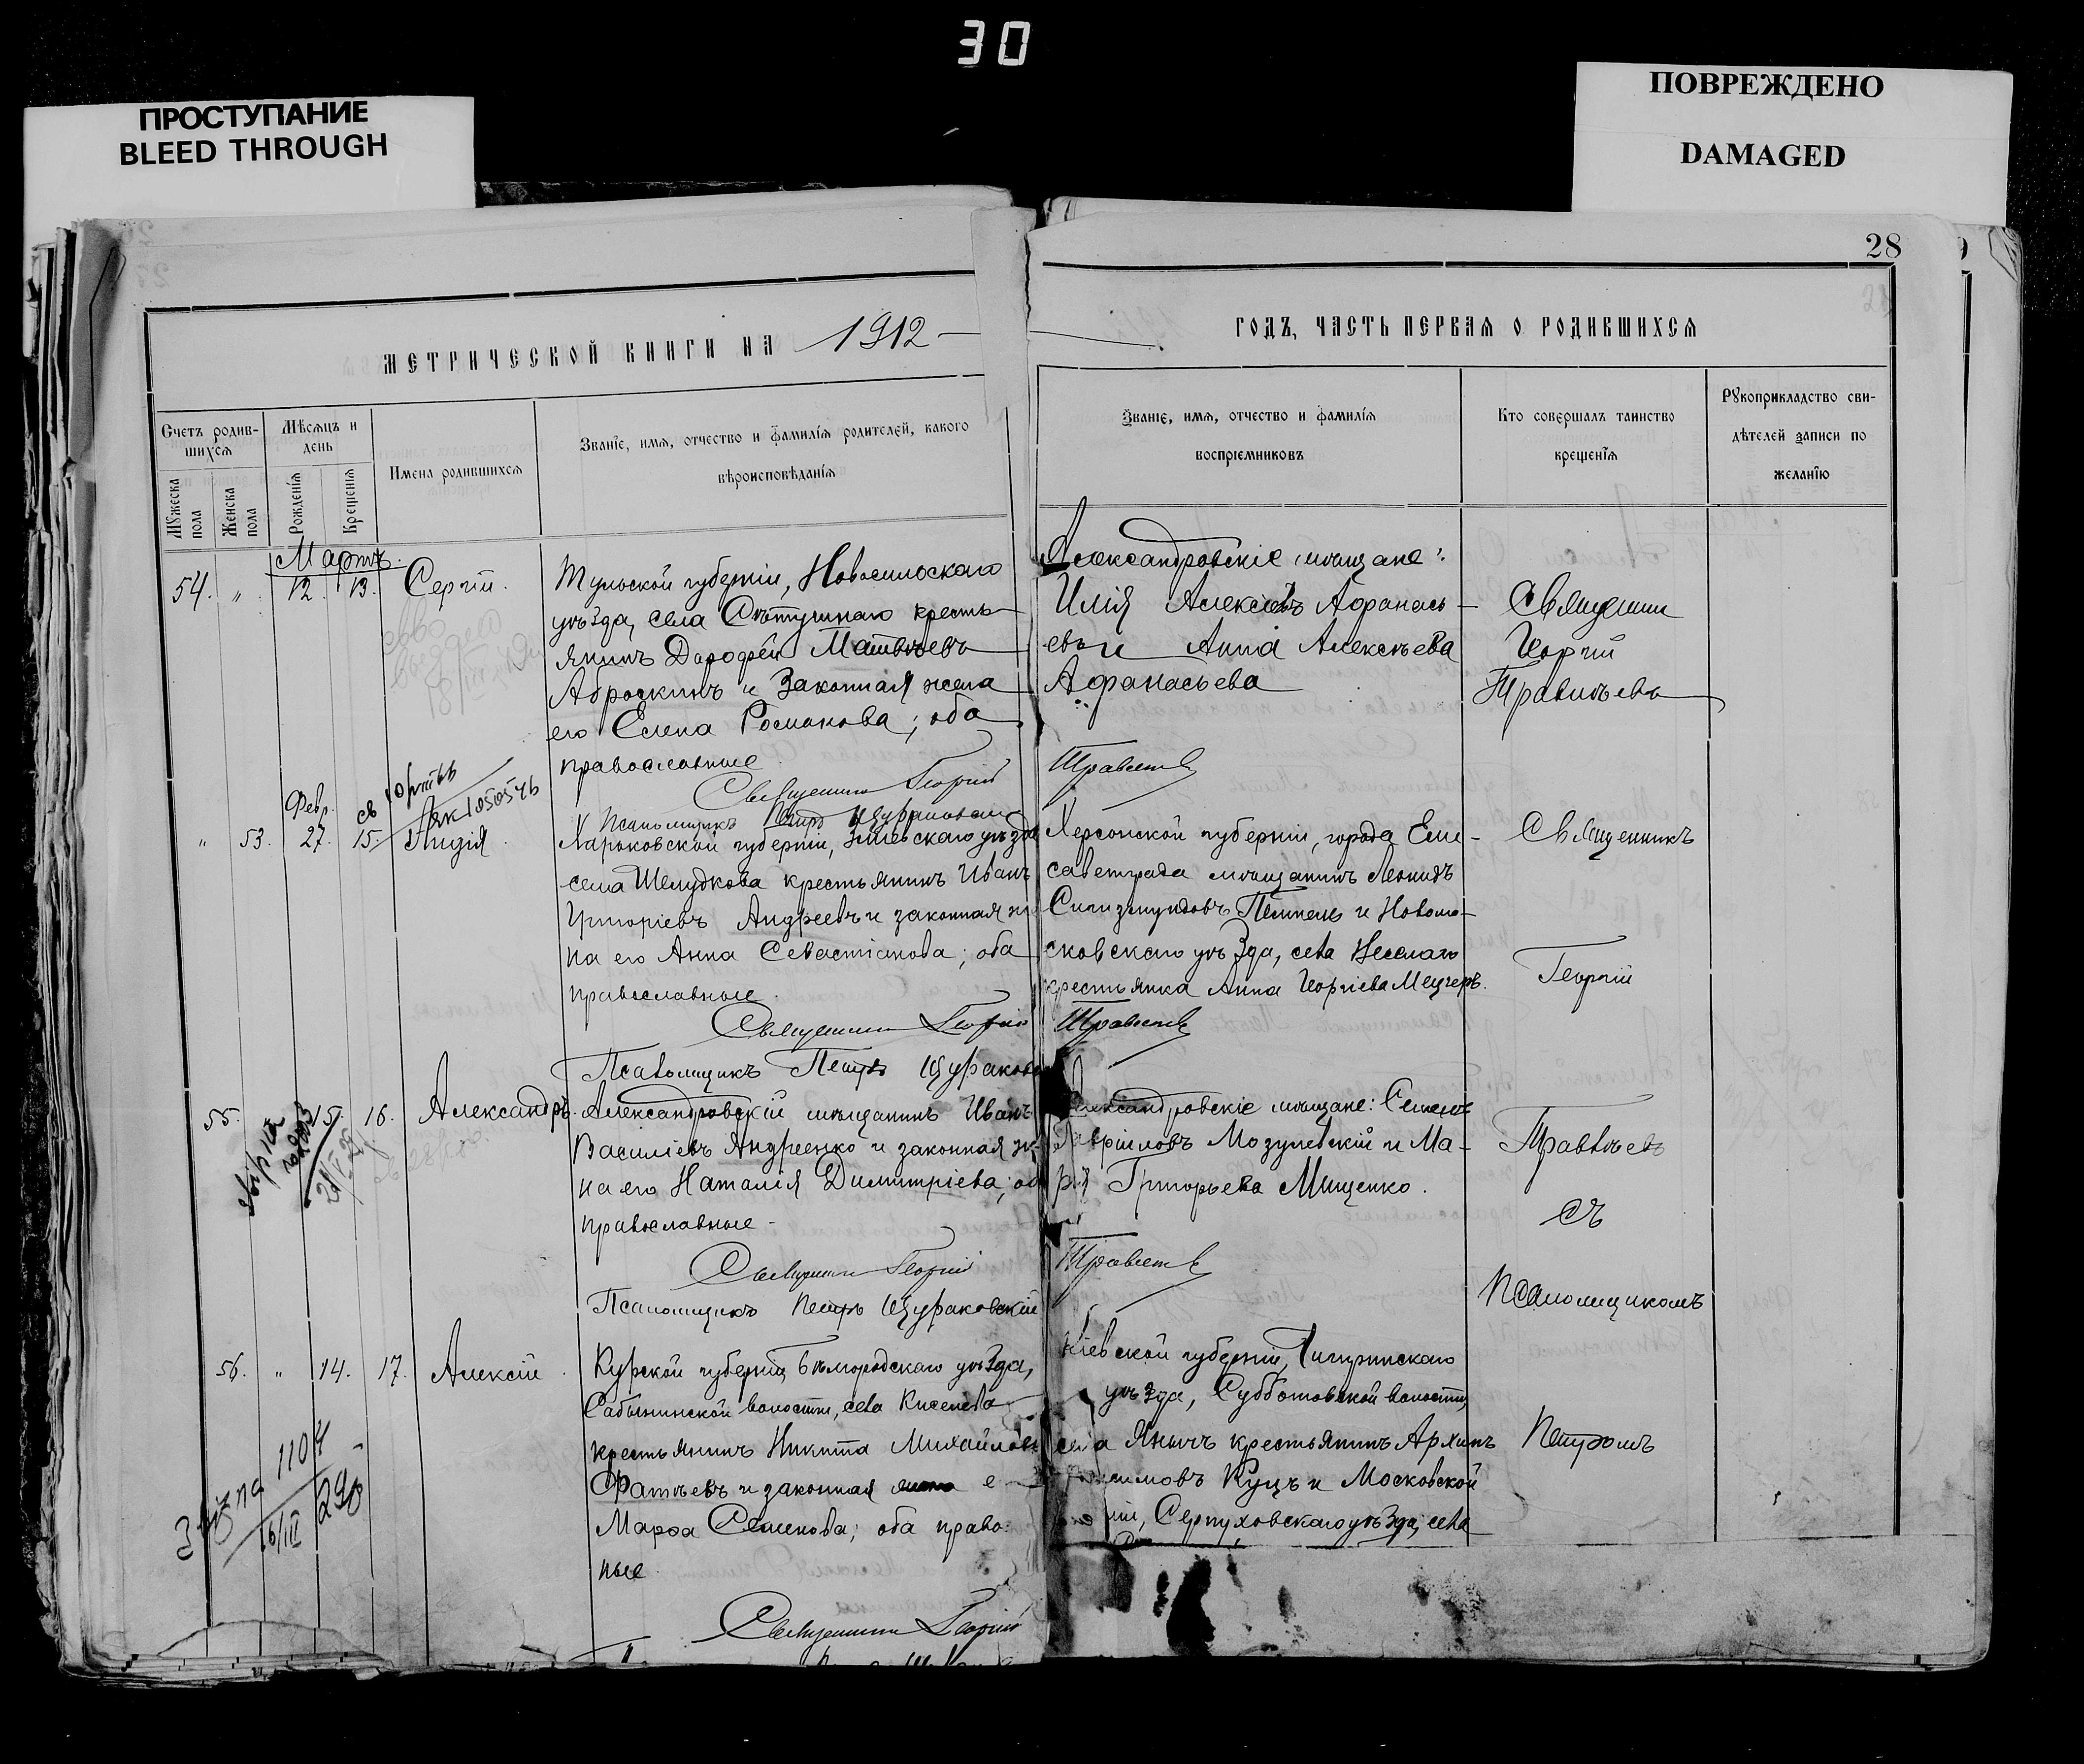 30
ПРОСТУПАНИЕ
BLEED THROUGH
ПОВРЕЖДЕНО
DAMAGED
28
МЕТРИЧЕСКОЙ КНИГИ НА 1912
ГОДЪ, ЧАСТЬ ПЕРВАЯ О РОДИВШИХСЯ
Счетъ родив-
шихся
Мужеска пола
Женска пола
Мѣсяцъ и
день
Рожденія
Крещенія
Имена родившихся
Званіе, имя, отчество и фамилія родителей, какого
вѣроисповѣданія
Званіе, имя, отчество и фамилія
воспріемниковъ
Кто совершалъ таинство
крещенія
Рукоприкладство сви-
дѣтелей записи по
желанію
Мартъ.
54. " 12. 13. Сергій.
Тульской губерніи, Новосильскаго
уѣзда, села кресть-
янинъ Дорофей Матвѣевъ
Аброскинъ и законная жена
его Елена Романова; оба
православные.
Священникъ Георгій
Псаломщикъ Петръ Щураковскій
Александровскіе мѣщане:
Илія Алексіевъ Афанась-
евъ и Анна Алексѣева
Афанасьева
Правѣевъ
Священникъ
Георгій
Правѣевъ
Февр.
" 53. 27. 15. Лидія.
Харьковской губерніи, Зміевскаго уѣзда
села Шелудкова крестьянинъ Иванъ
Григоріевъ Андреевъ и законная же-
на его Анна Севастіанова; оба
православные.
Священникъ Георгій
Псаломщикъ Петръ Щураковскій
Херсонской губерніи, города Ели-
саветграда мѣщанинъ Леонидъ
Сигизмундовъ и Новомо-
сковскаго уѣзда, села
крестьянка Анна Георгіева Мецгеръ.
Правѣевъ
Священникъ
Георгій
55. 15. 16. Александръ.
Александровскій мѣщанинъ Иванъ
Василіевъ Андреенко и законная же-
на его Наталія Димитріева; оба
православные.
Священникъ Георгій
Псаломщикъ Петръ Щураковскій
Александровскіе мѣщане: Семенъ
Гавріиловъ Мозулевскій и Ма-
рія Григорьева Мищенко.
Правѣевъ
Правѣевъ
съ
Псаломщикомъ
56. " 14. 17. Алексій.
Курской губерніи, Бѣлгородскаго уѣзда,
Сабынинской волости, села Киселева
крестьянинъ Никита Михайловъ
Фатѣевъ и законная е
Марфа Семенова; оба право-
ные.
Священникъ Георгій
Кіевской губерніи, Чигиринскаго
уѣзда, Субботовской волости,
села крестьянинъ Архипъ
Куцъ и Московской
ніи, Серпуховскаго уѣзда, села
Петромъ
1104
290
16/III